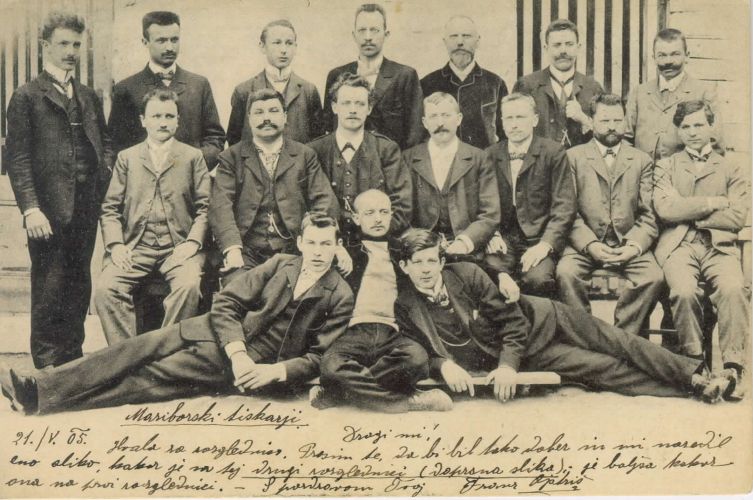 Mariborski tiskarji
21./V. 05. Dragi mi!
Hvala za razglednico. Prosim te, da bi bil tako dober in mi naredil
eno sliko, kakor je na tej drugi razglednici (deprana slika); je boljša kakor
ona na prvi razglednici. — S pozdravom Tvoj Franz